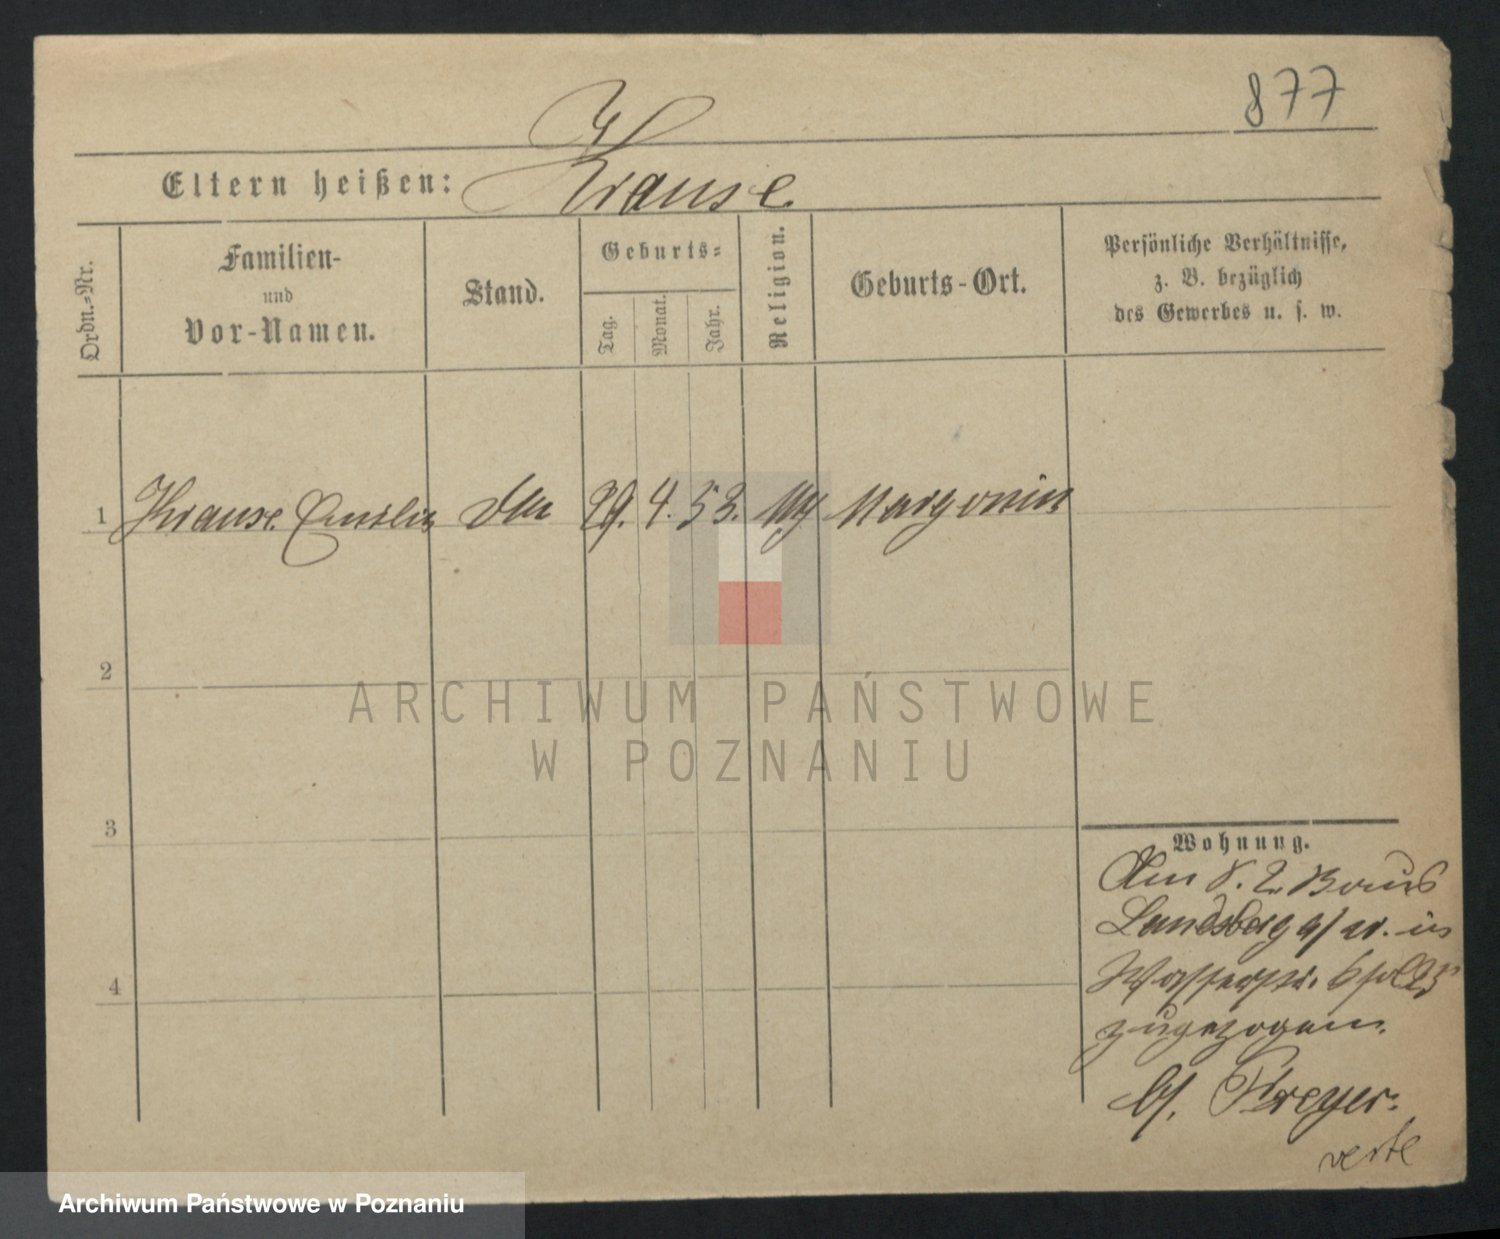 877
Eltern heißen: Krause
Ordn.-Nr.
Familien-
und
Vor-Namen.
Stand.
Geburts-
Tag.
Monat.
Jahr.
Religion.
Geburts-Ort.
Persönliche Verhältnisse,
z. B. bezüglich
des Gewerbes u. s. w.
1 Krause 29. 4. 53. Margonin
2
3
4
Wohnung.
Landsberg a/ in
Wasserstr.
zugezogen.
b/. Freyer.
verte
ARCHIWUM PAŃSTWOWE
W POZNANIU
Archiwum Państwowe w Poznaniu